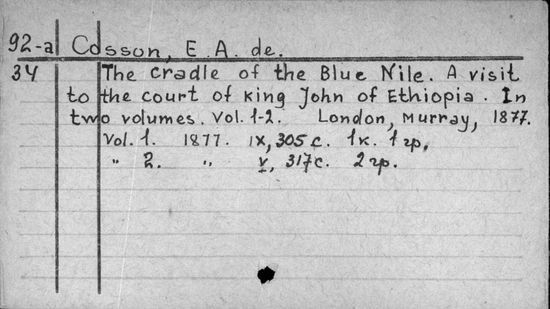 92-a Cosson, E. A. de.
34 The cradle of the Blue Nile. A visit
to the court of king John of Ethiopia. In
two volumes. Vol. 1-2. London, Murray, 1877.
Vol. 1. 1877. IX, 305 с. 1 к. 1 гр.
" 2. " V, 317 с. 2 гр.